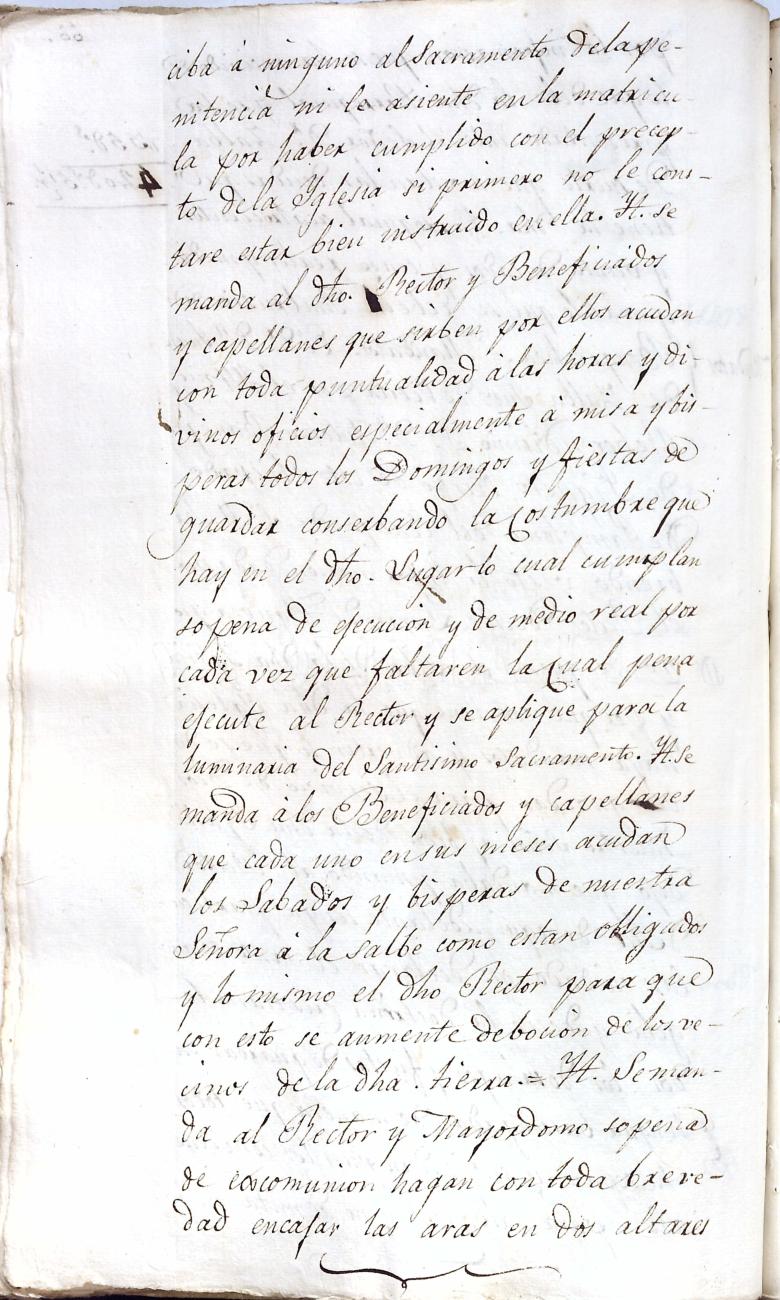 ciba á ninguno al Sacramento dela pe-
nitencia ni le asiente en la matricu-
la por haber cumplido con el precep-
to dela Yglesia si primero no le cons-
tare estar bien instruido en ella. Yt. se
manda al dho. Rector y Beneficiados
y capellanes que sirben por ellos acudan
con toda puntualidad á las horas y di-
vinos oficios especialmente á misa y bis-
peras todos los Domingos y fiestas de
guardar conserbando la costumbre que
hay en el dho. Lugar lo cual cumplan
so pena de ejecucion y de medio real por
cada vez que faltaren la cual pena
ejecute al Rector y se aplique para la
luminaria del Santisimo Sacramento. Yt. se
manda á los Beneficiados y capellanes
que cada uno en sus meses acudan
los Sabados y bisperas de nuestra
Señora á la salbe como estan obligados
y lo mismo el dho Rector para que
con esto se aumente deboción de los ve-
cinos de la dha. tierra. = Yt. Se man-
da al Rector y Mayordomo so pena
de excomunion hagan con toda breve-
dad encajar las aras en dos altares